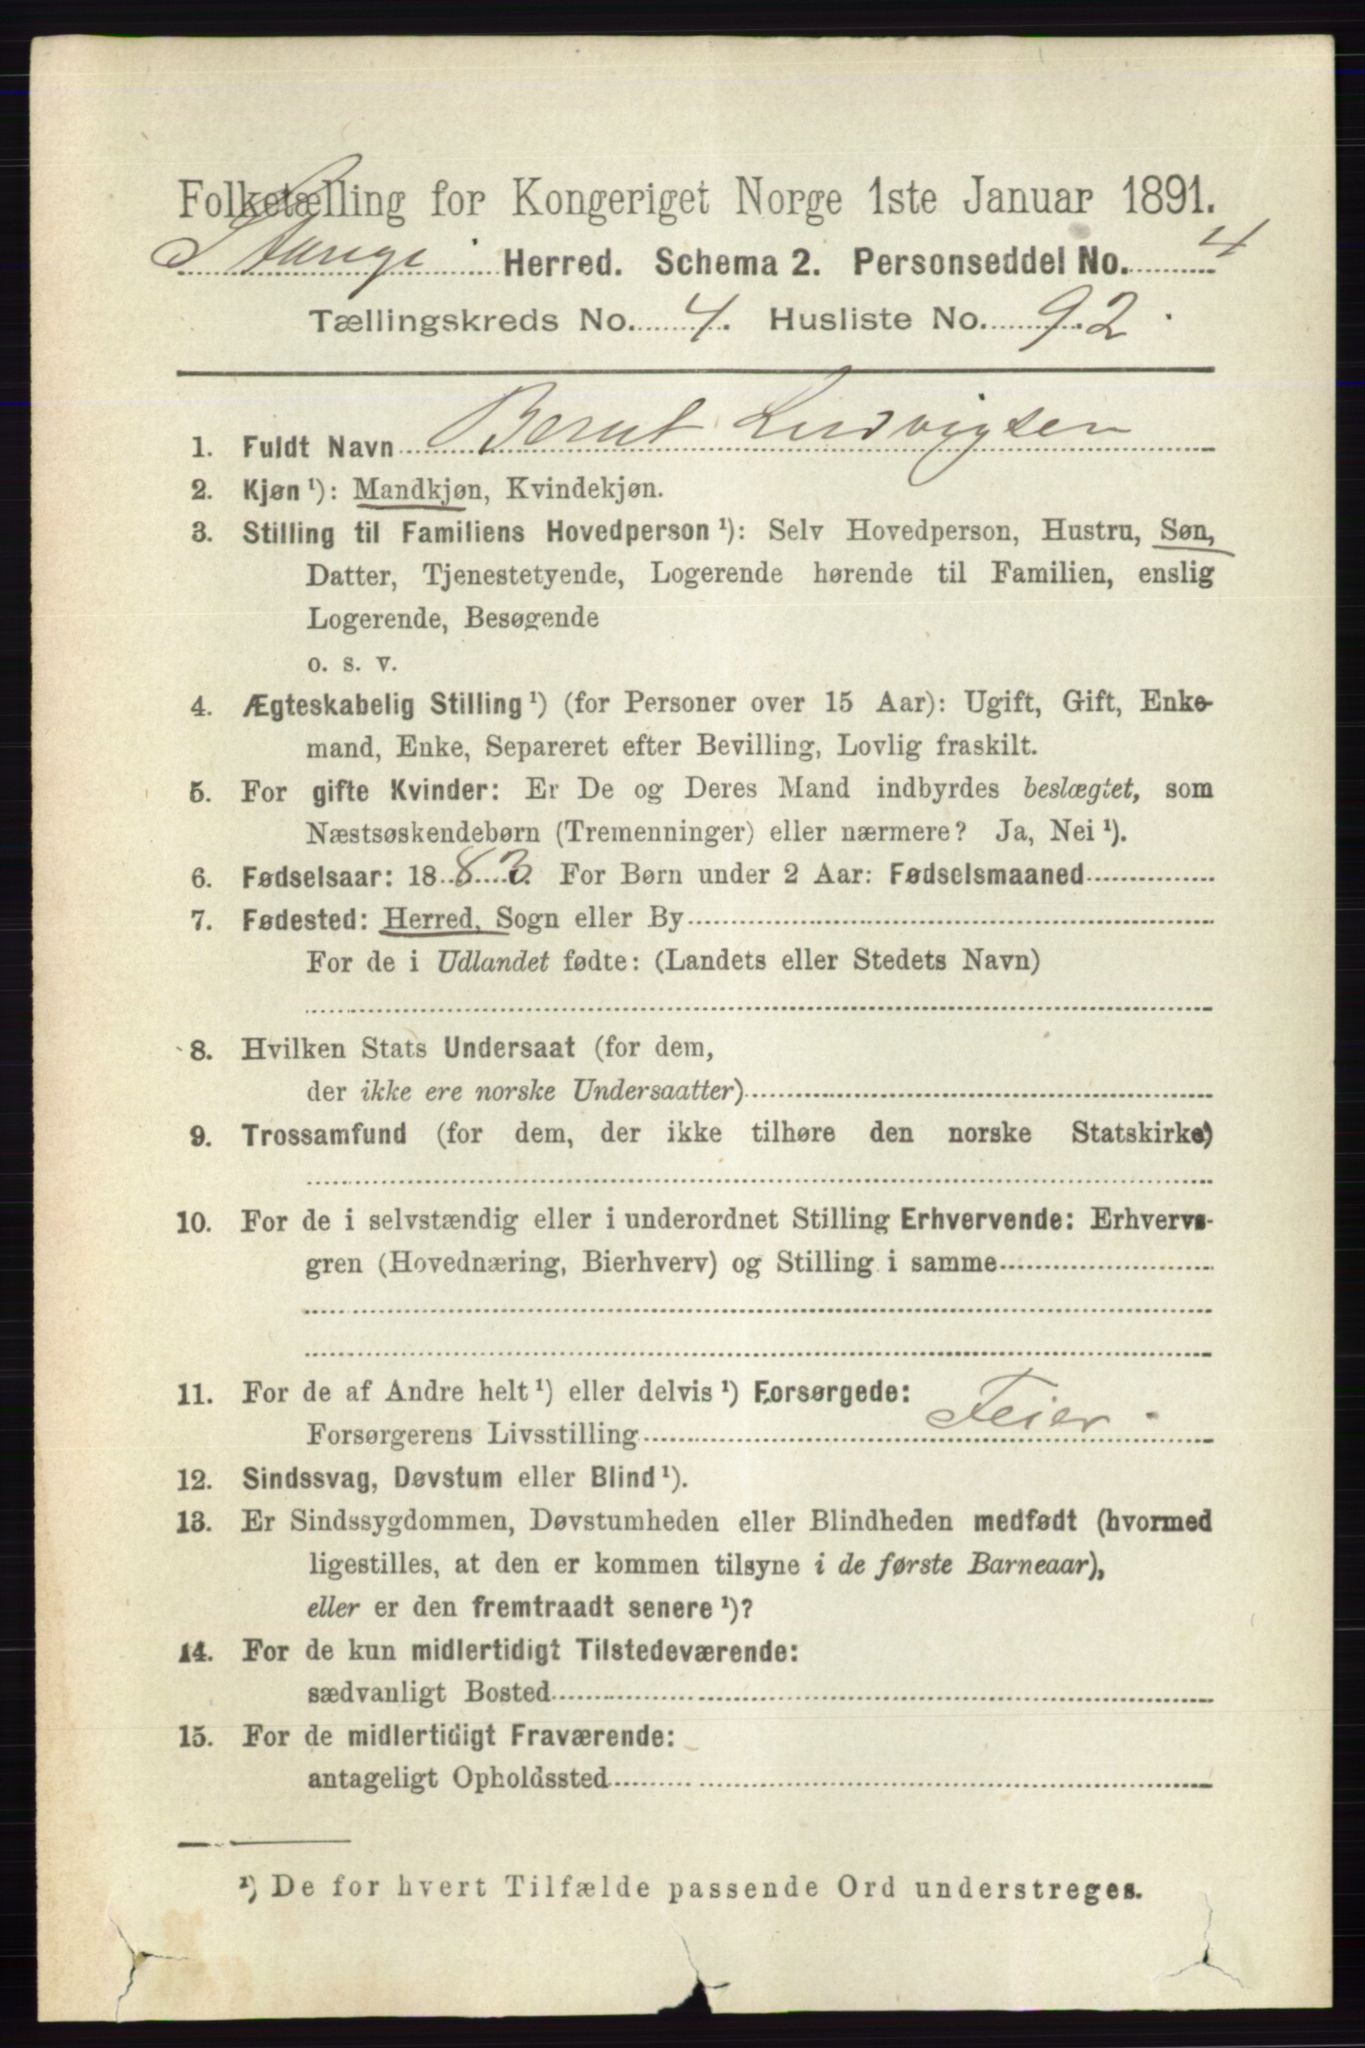 Folketælling for Kongeriget Norge 1ste Januar 1891.
Stange Herred. Schema 2. Personseddel No. 4
Tællingskreds No. 4. Husliste No. 92.
1. Fuldt Navn Bernt Ludvigsen
2. Kjøn ¹): Mandkjøn, Kvindekjøn.
3. Stilling til Familiens Hovedperson ¹): Selv Hovedperson, Hustru, Søn,
Datter, Tjenestetyende, Logerende hørende til Familien, enslig
Logerende, Besøgende
o. s. v.
4. Ægteskabelig Stilling ¹) (for Personer over 15 Aar): Ugift, Gift, Enke-
mand, Enke, Separeret efter Bevilling, Lovlig fraskilt.
5. For gifte Kvinder: Er De og Deres Mand indbyrdes beslægtet, som
Næstsøskendebørn (Tremenninger) eller nærmere? Ja, Nei ¹).
6. Fødselsaar: 1883. For Børn under 2 Aar: Fødselsmaaned
7. Fødested: Herred, Sogn eller By
For de i Udlandet fødte: (Landets eller Stedets Navn)
8. Hvilken Stats Undersaat (for dem,
der ikke ere norske Undersaatter)
9. Trossamfund (for dem, der ikke tilhøre den norske Statskirke)
10. For de i selvstændig eller i underordnet Stilling Erhvervende: Erhvervs-
gren (Hovednæring, Bierhverv) og Stilling i samme
11. For de af Andre helt ¹) eller delvis ¹) Forsørgede:
Forsørgerens Livsstilling Feier.
12. Sindssvag, Døvstum eller Blind ¹).
13. Er Sindssygdommen, Døvstumheden eller Blindheden medfødt (hvormed
ligestilles, at den er kommen tilsyne i de første Barneaar),
eller er den fremtraadt senere ¹)?
14. For de kun midlertidigt Tilstedeværende:
sædvanligt Bosted
15. For de midlertidigt Fraværende:
antageligt Opholdssted
¹) De for hvert Tilfælde passende Ord understreges.